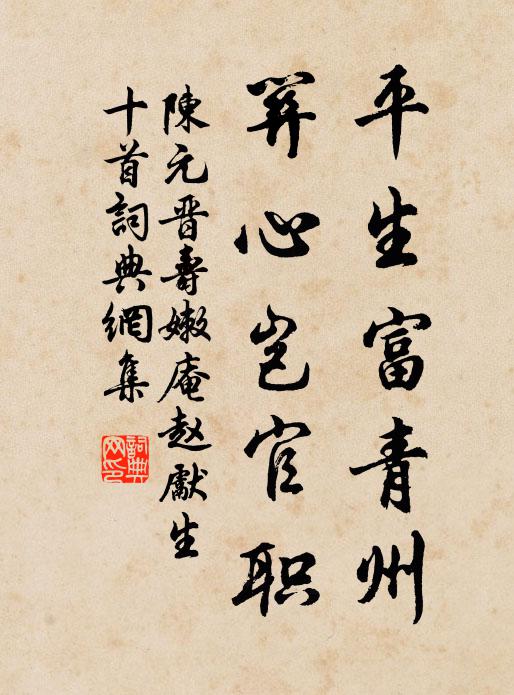 平生富青州
算心岂官职
陳元晋壽嫩庵赵獻生
十首詞典網集
詞典网印